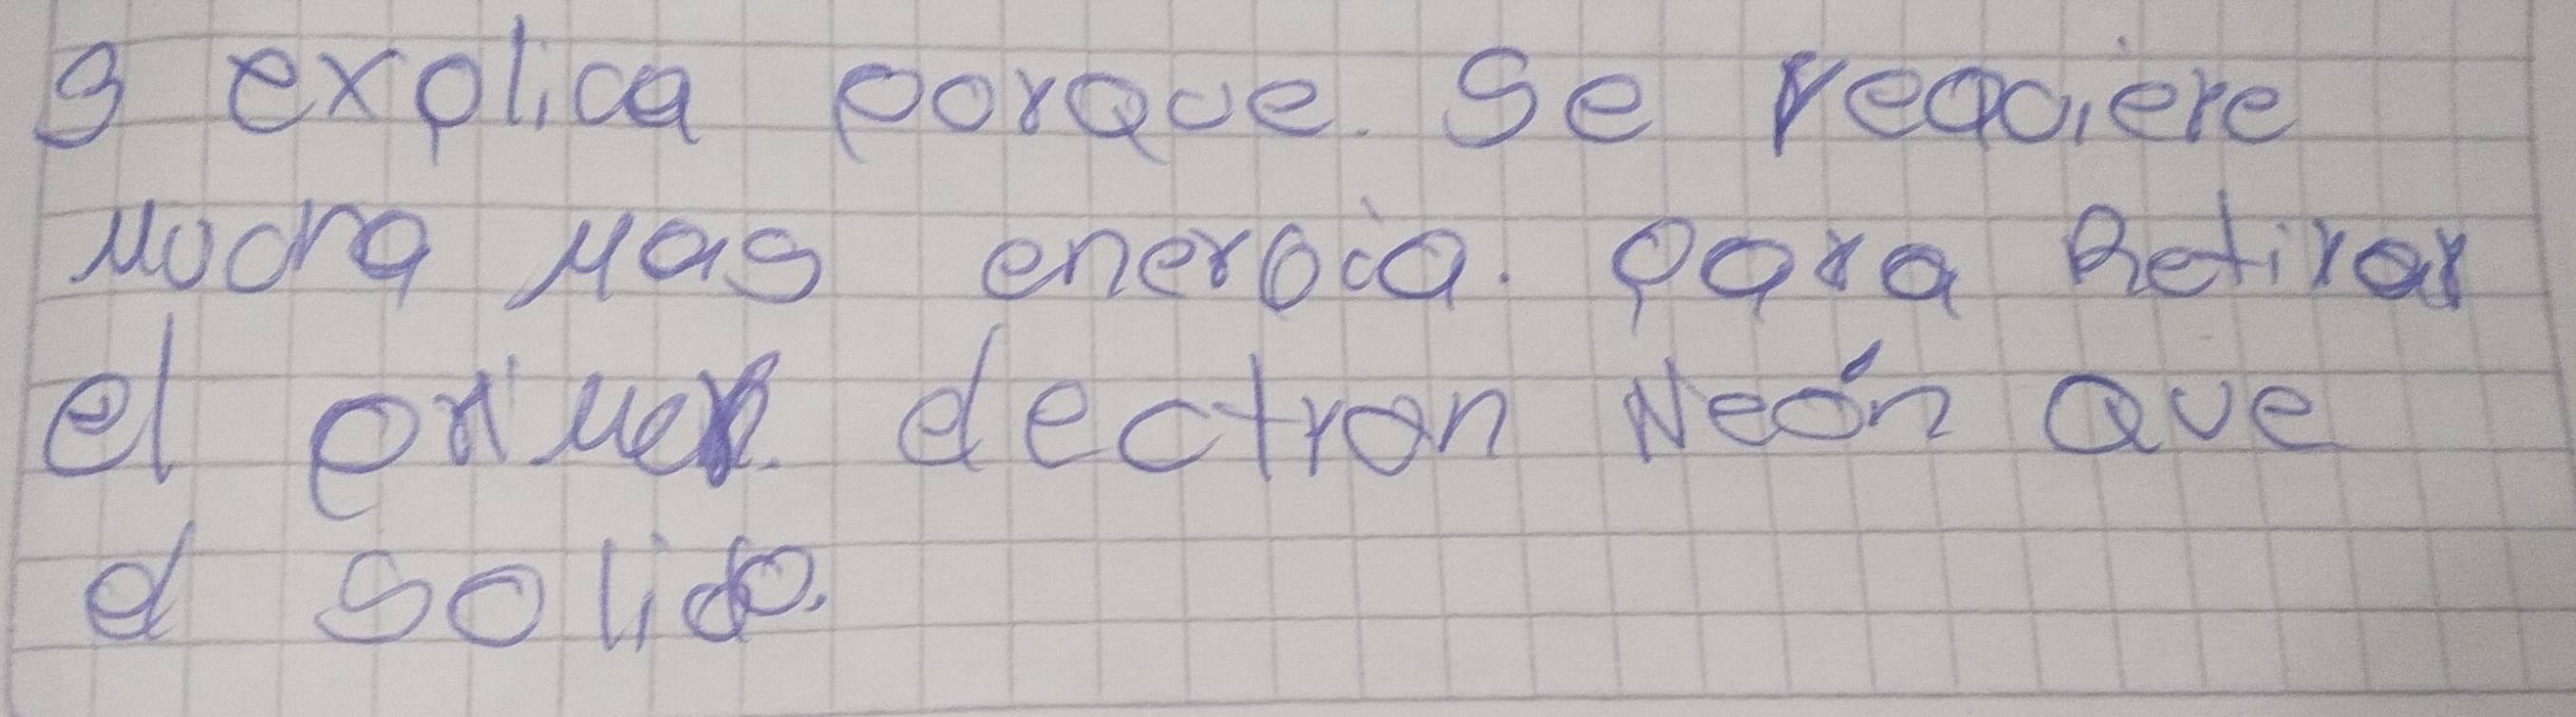 9 explica porque. Se requiere
mucha mas energia. para Retirar
el primer electron Neón que
el solido.